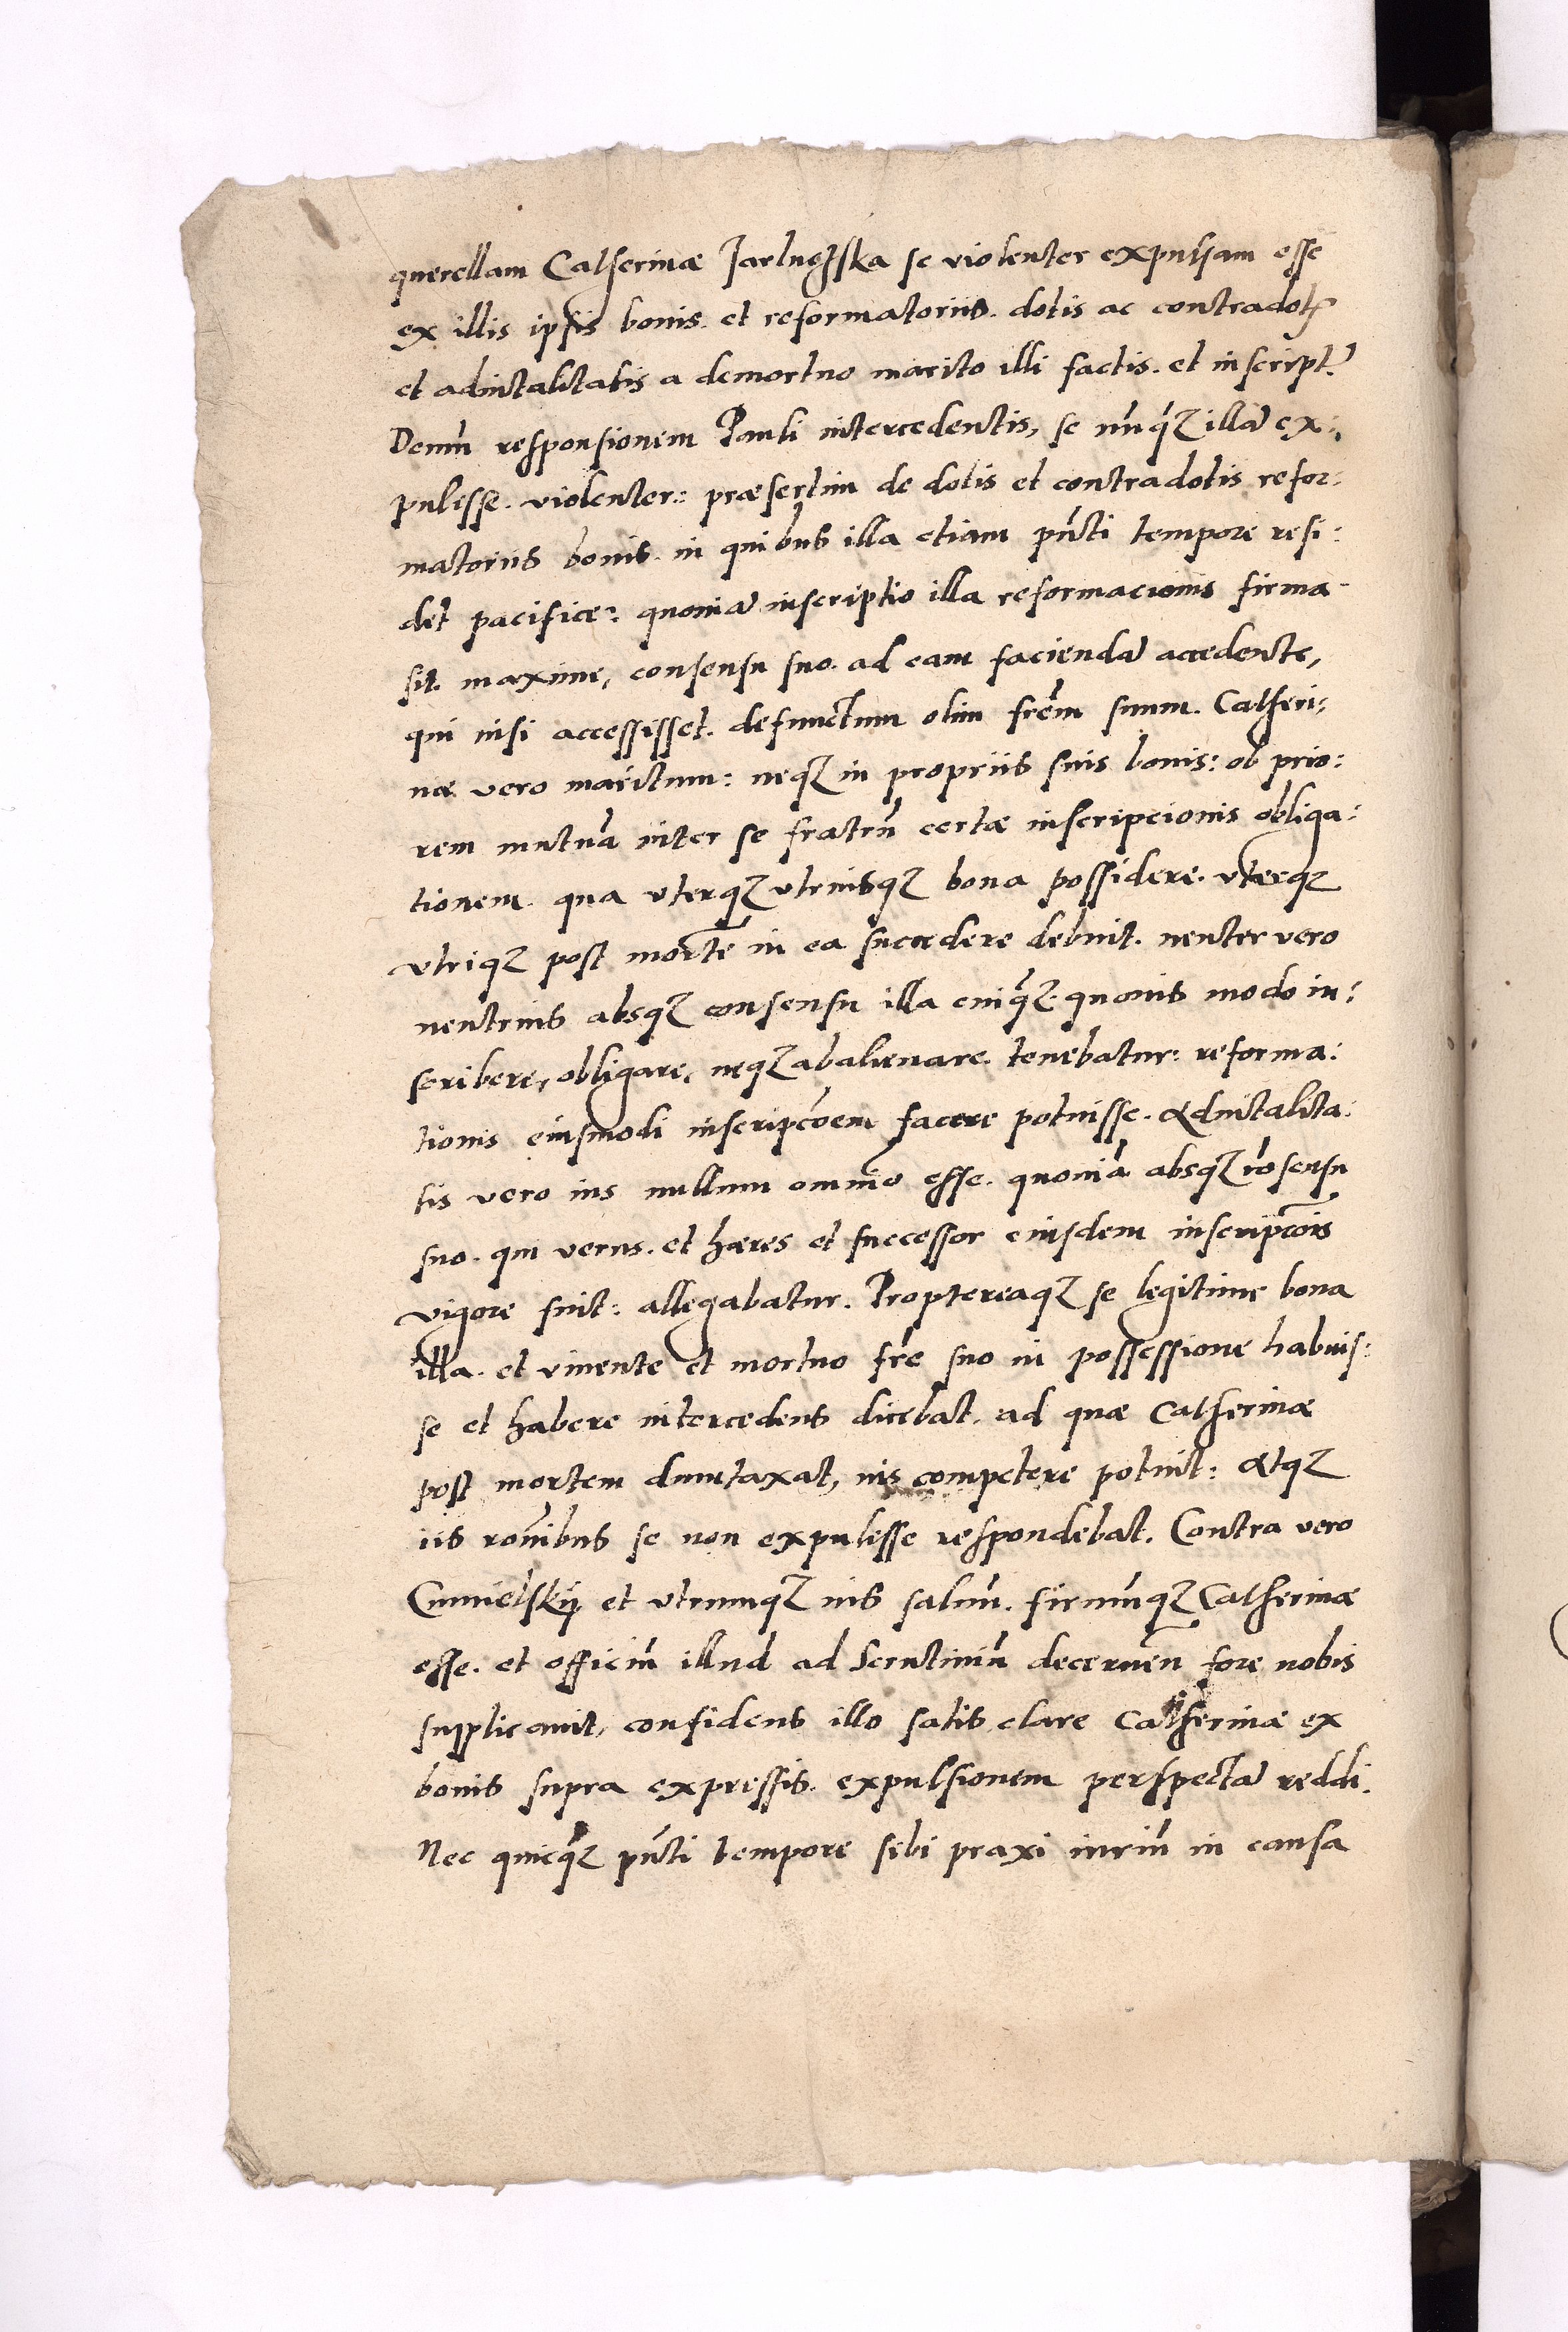 querellam Catherinæ Jarlugzska se violenter expulsam esse
ex illis ipsis bonis. et reformatoriis. dotis ac contradotꝭ
et aduitalitatis a demortuo marito illi factis. et inscriptꝭ
Demū responsionem Pauli intercedentis, se nūqꝫ illā ex:
pulisse. violenter: præsertim de dotis et contradotis refor:
matoriis bonis. in quibus illa etiam pn̄ti tempore resi:
det pacifice: quoniā inscriptio illa reformacionis firma
sit. maxime, consensu suo. ad eam faciendā accedente,
qui nisi accessisset. defunctum olim frēm suum. Catheri:
næ vero maritum: neqꝫ in propriis suis bonis: ob prio:
rem mutuā inter se fratrū certæ inscripcionis obliga:
tionem. qua vterqꝫ vtriusqꝫ bona possidere. vterqꝫ
vtriqꝫ post mortē in ea succedere debuit. neuter vero
neutrius absqꝫ consensu illa cuiqꝫ quouis modo in:
scribere, obligare, neqꝫ abalienare. tenebatur: reforma:
tionis eiusmodi inscripcōem facere potuisse. Aduitalita:
tis vero ius nullum omnino esse. quoniā absqꝫ cōsensu
suo. qui verus. et hæres et successor eiusdem inscripcōis
vigore fuit: allegabatur. Proptereaqꝫ se legitime bona
illa. et viuente et mortuo frē suo in possessione habuis:
se et habere intercedens dicebat. ad quæ Catherinæ
post mortem dumtaxat, ius competere potuit: Atqꝫ
iis rōnibus se non expulisse respondebat. Contra vero
Cunielskÿ et vtrumqꝫ ius saluū. firmūqꝫ Catherinæ
esse. et officiū illud ad Scrutiniū decernen̄ fore nobis
supplicauit, confidens illo satis clare Catherinæ ex
bonis supra expressis. expulsionem perspectā reddi.
Nec quicqꝫ pn̄ti tempore sibi praxi iuriū in causa